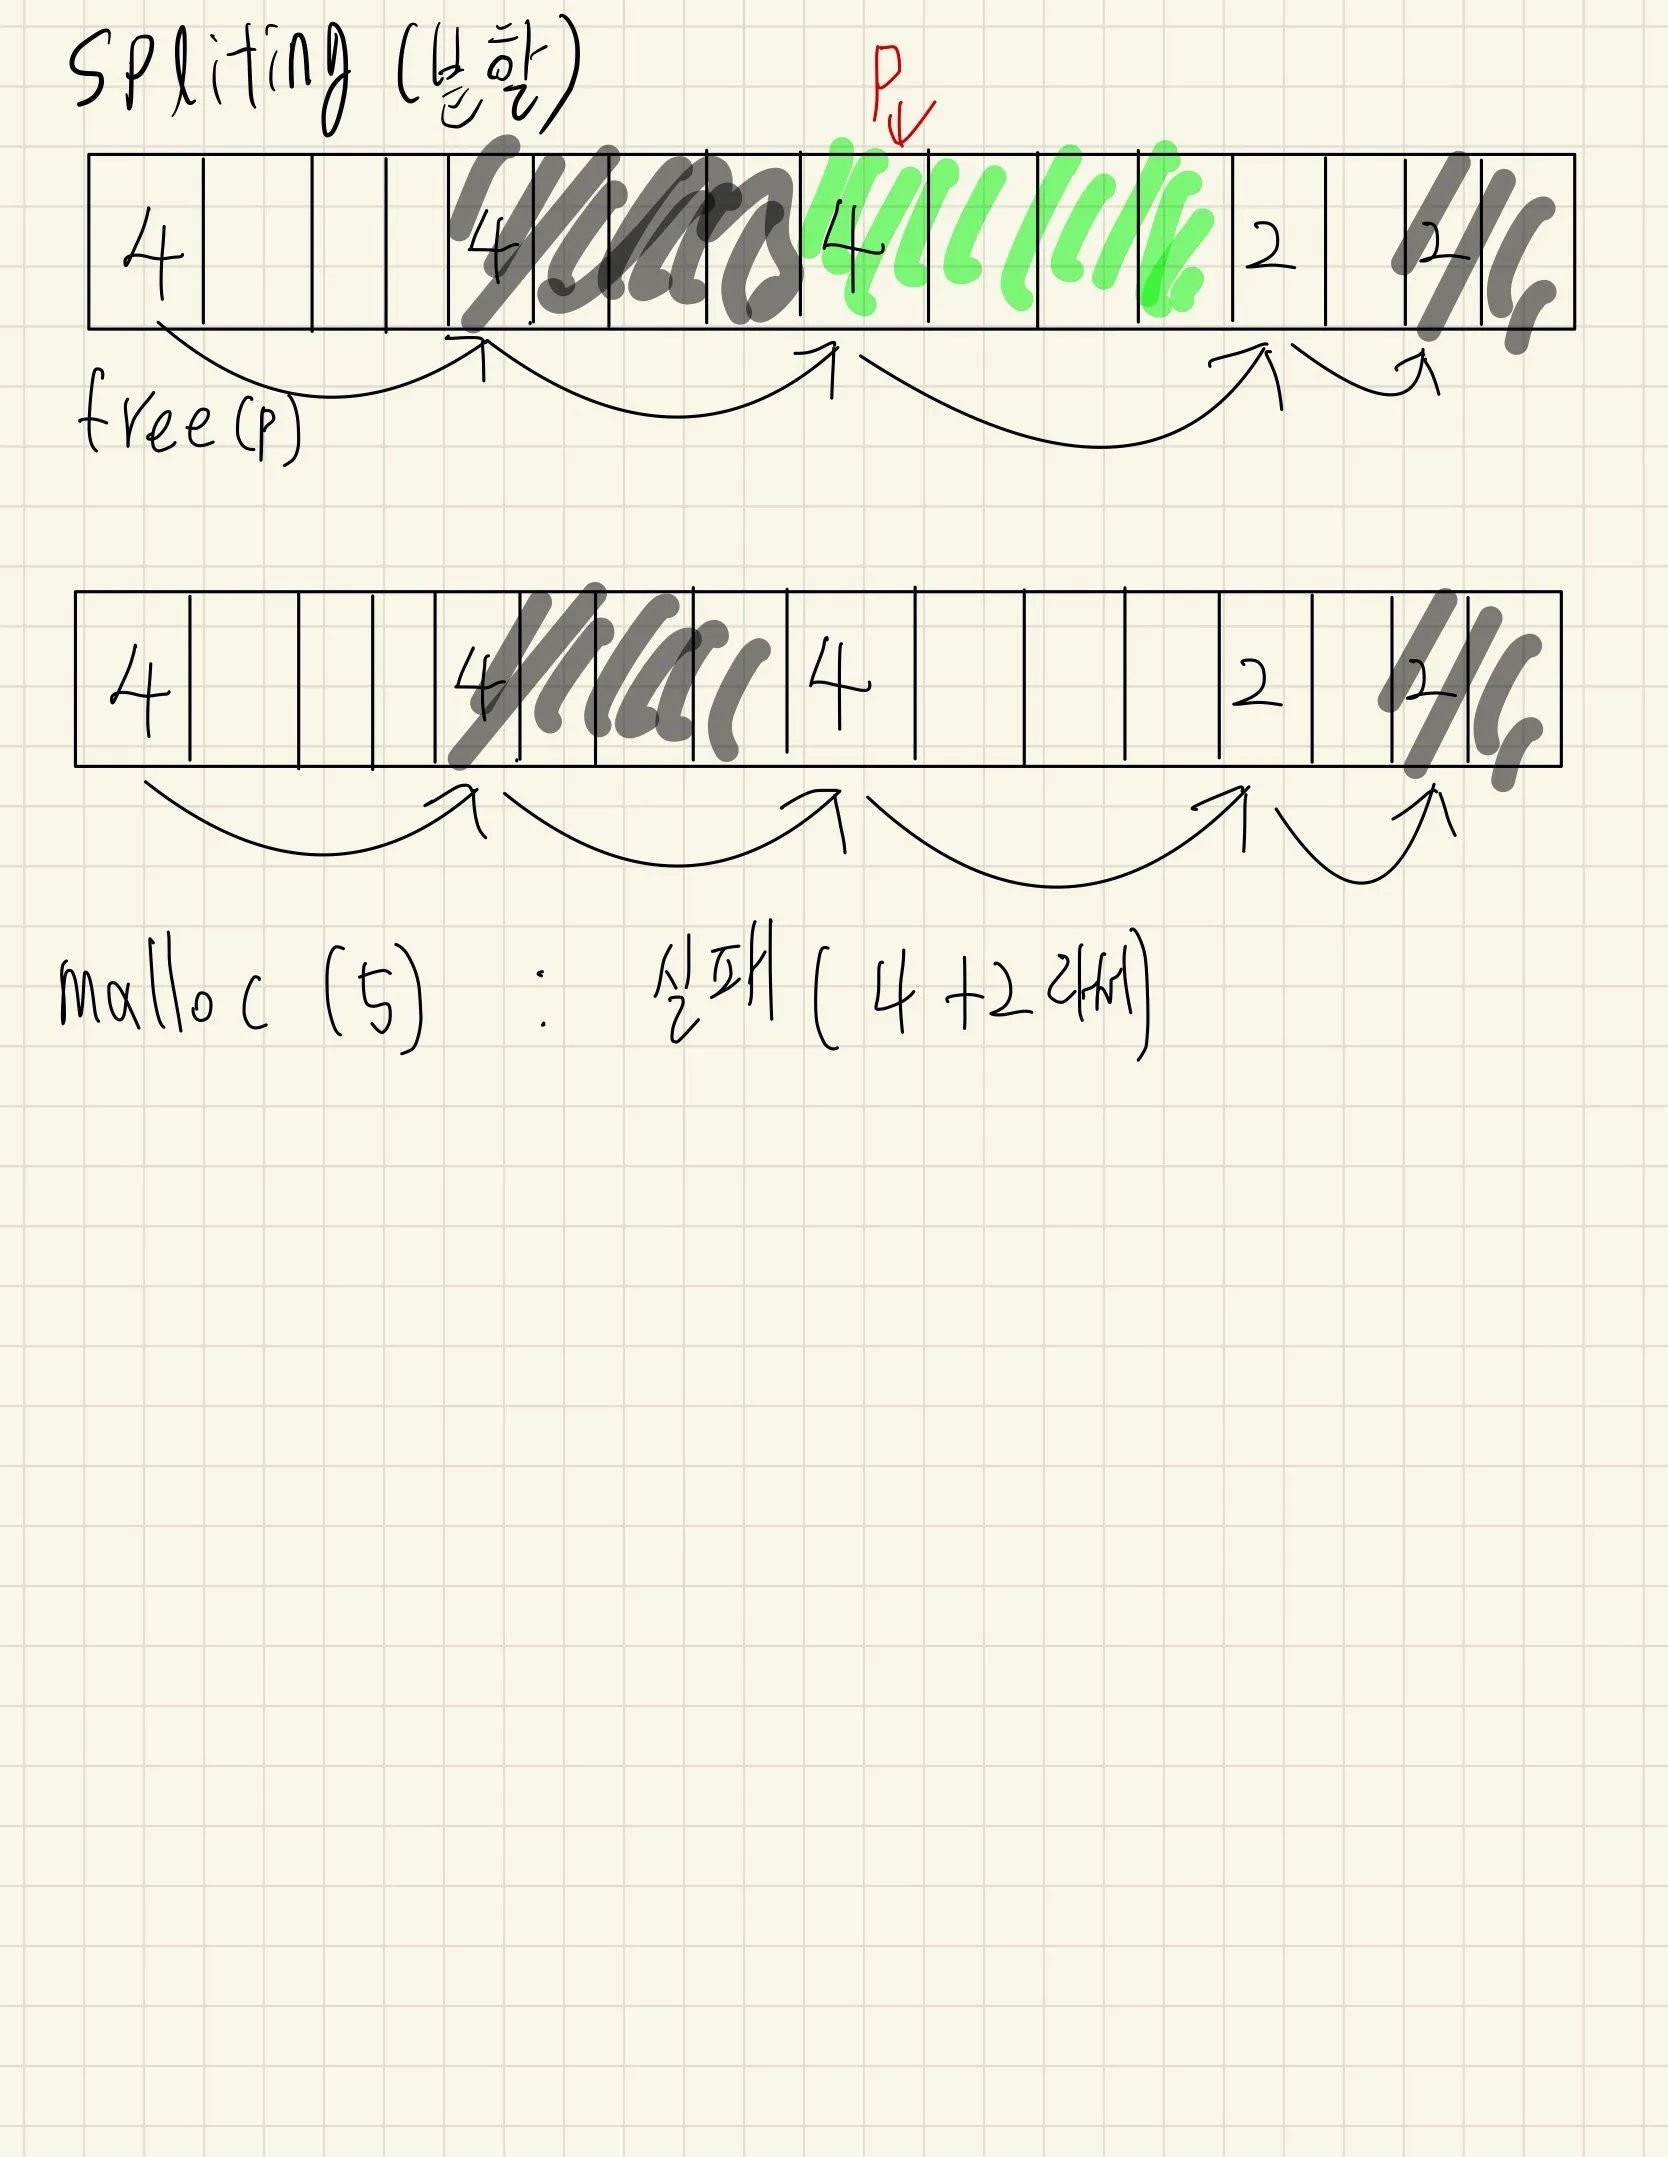 spliting (분할)
P
4 4 4 2 2
free(p)
4 4 4 2 2
malloc (5) : 실패 ( 4 +2